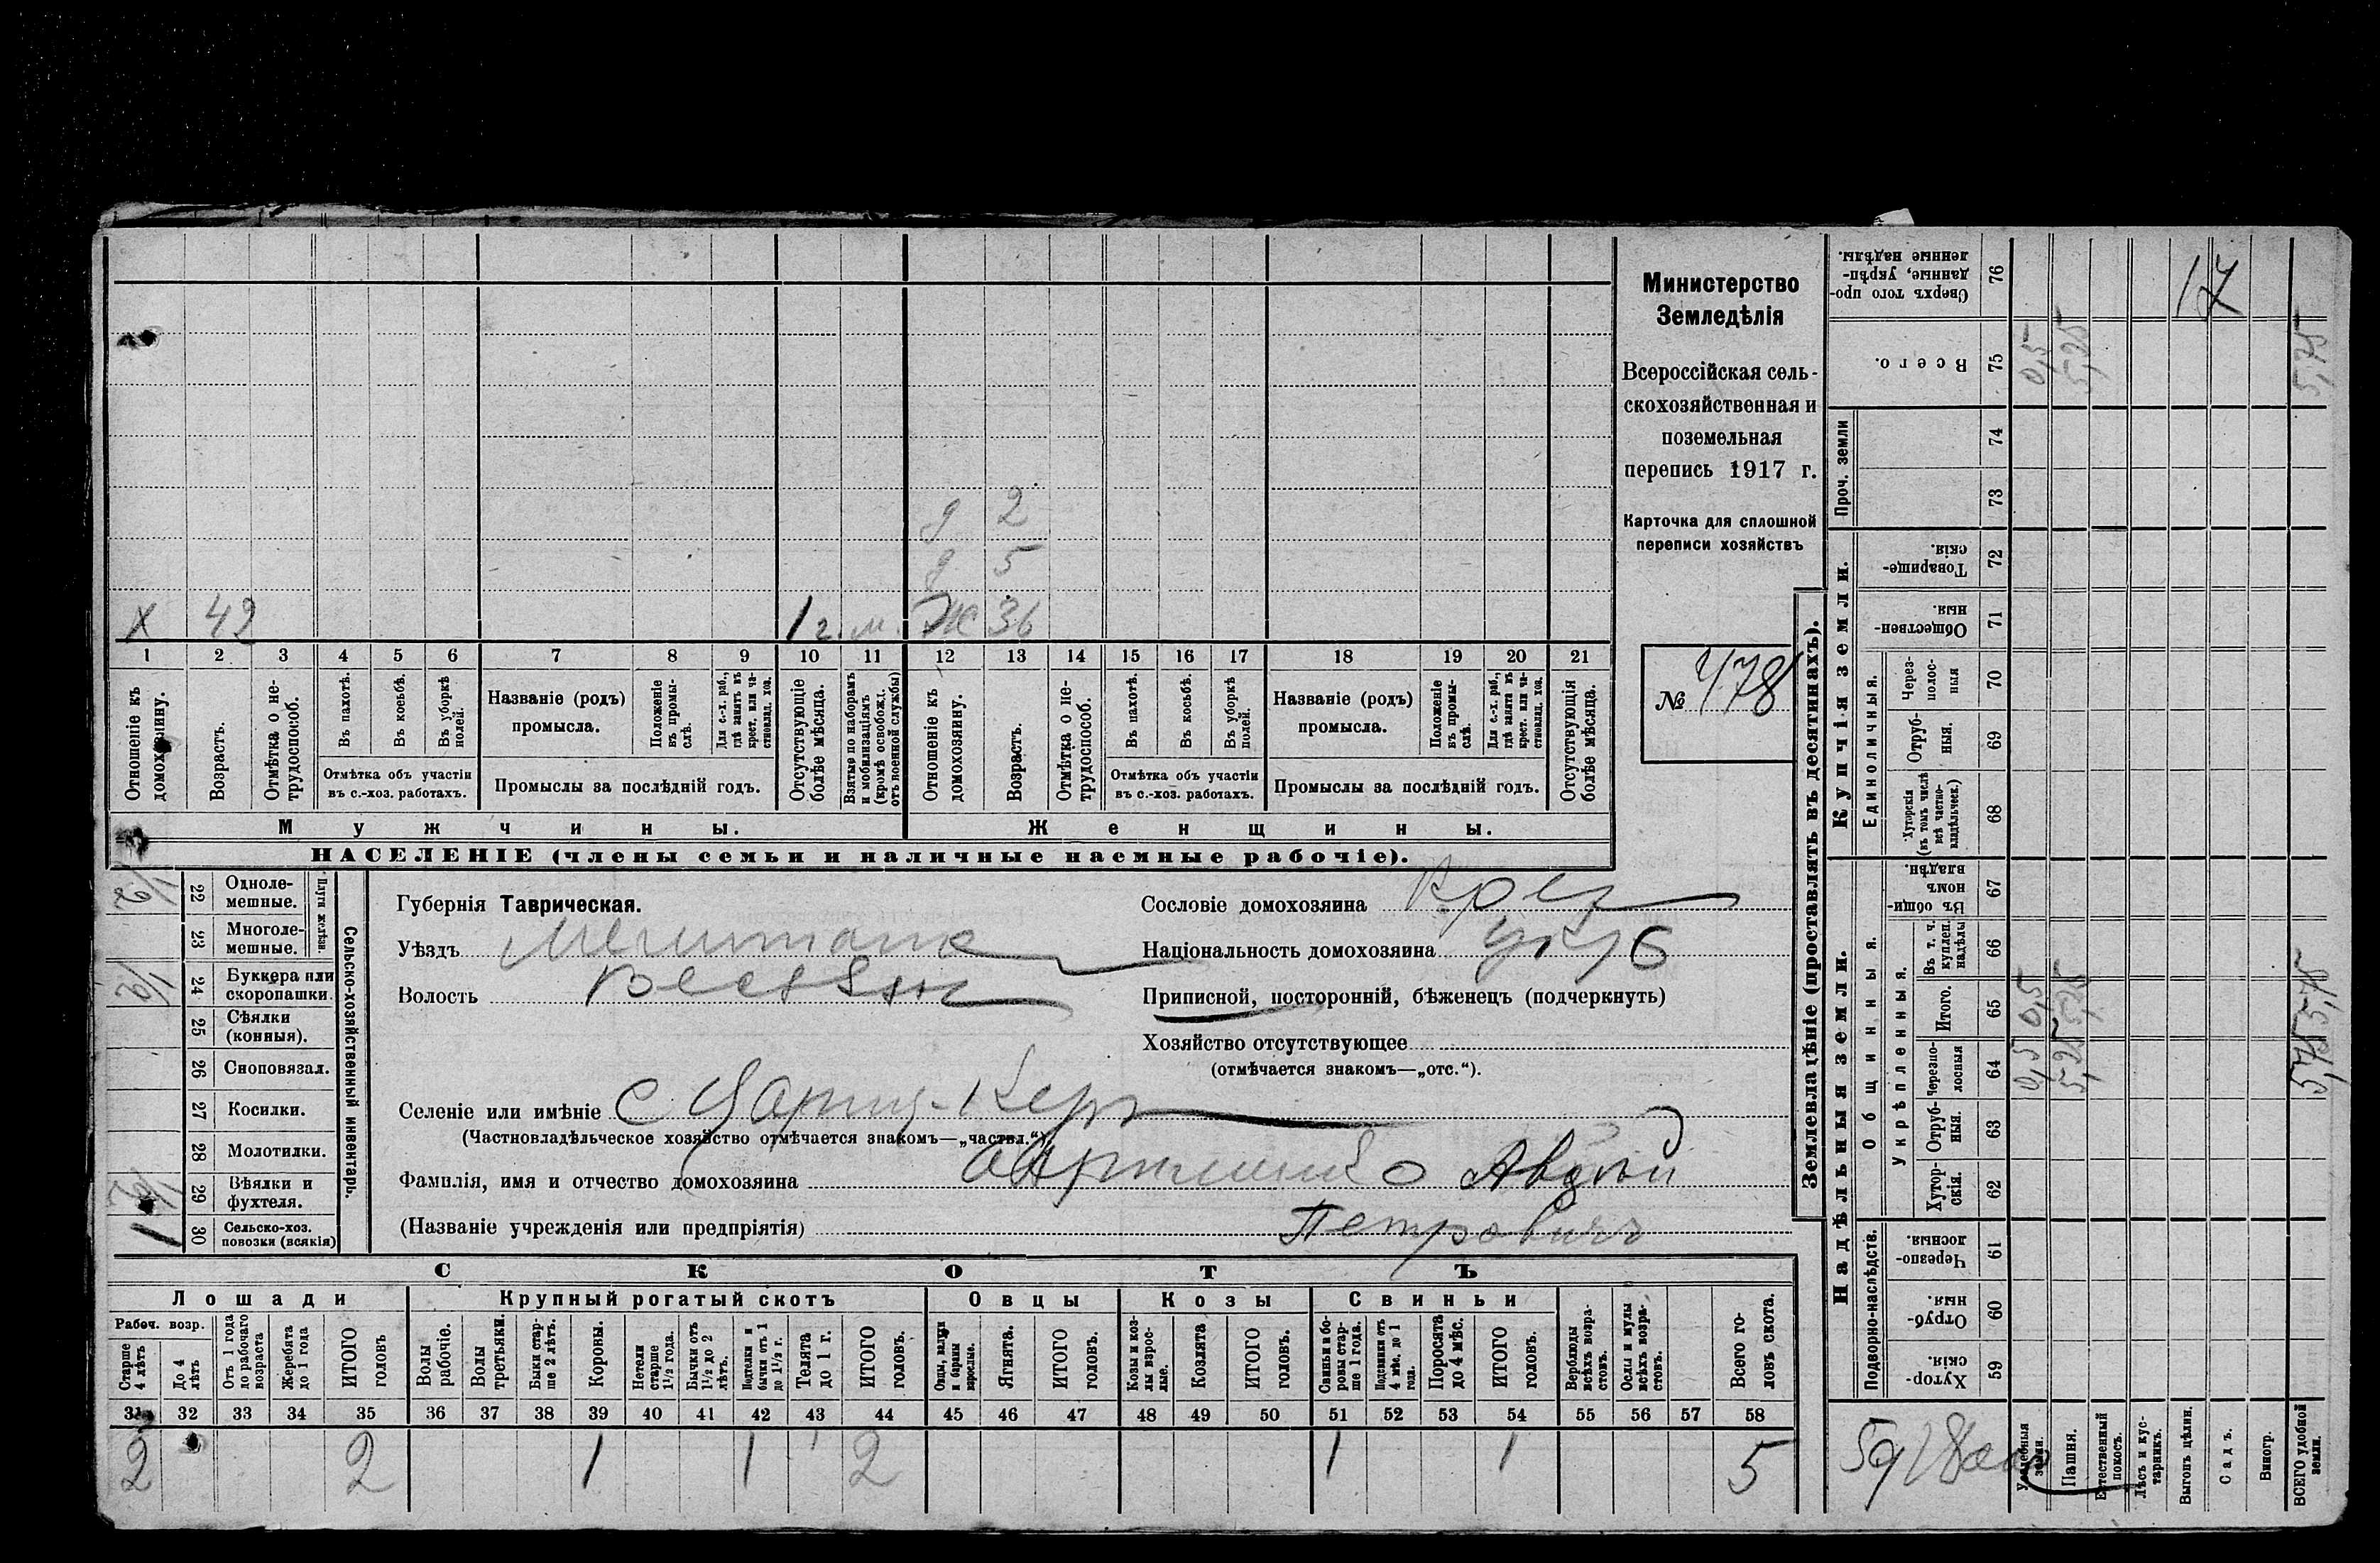 Министерство
Земледѣлія
Всероссійская сель-
скохозяйственная и
поземельная
перепись 1917 г.
Карточка для сплошной
переписи хозяйствъ
№ 478
д 2
д 5
х 42 1 г. м. Ж 36
1 2 3 4 5 6 7 8 9 10 11 12 13 14 15 16 17 18 19 20 21
Отношеніе къ домохозяину.
Возрастъ.
Отмѣтка о не-трудоспособ.
Въ пахотѣ.
Въ косьбѣ.
Въ уборкѣ полей.
Отмѣтка объ участіи
въ с.-хоз. работахъ.
Названіе (родъ)
промысла.
Положеніе въ промы-слѣ.
Для с.-х. раб., гдѣ занятъ въ крест. или ча-стновлад. хоз.
Промыслы за послѣдній годъ.
Отсутствующіе болѣе мѣсяца.
Взятые по наборамъ и мобилизаціямъ (кромѣ освобожд. отъ военной службы)
Отношеніе къ домохозяину.
Возрастъ.
Отмѣтка о не-трудоспособ.
Въ пахотѣ.
Въ косьбѣ.
Въ уборкѣ полей.
Отмѣтка объ участіи
въ с.-хоз. работахъ.
Названіе (родъ)
промысла.
Положеніе въ промы-слѣ.
Для с.-х. раб., гдѣ занятъ въ крест. или ча-стновлад. хоз.
Промыслы за послѣдній годъ.
Отсутствующія болѣе мѣсяца.
Мужчины. Женщины.
НАСЕЛЕНІЕ (члены семьи и наличные наемные рабочіе).
Сельско-хозяйственный инвентарь.
Плуги желѣзн.
1/2 22 Одноле-мешные.
23 Многоле-мешные.
1/2 24 Буккера или скоропашки.
25 Сѣялки (конныя).
26 Сноповязал.
27 Косилки.
28 Молотилки.
1/2 29 Вѣялки и фухтеля.
1 30 Сельско-хоз. повозки (всякія)
Губернія Таврическая.
Уѣздъ
Волость
Селеніе или имѣніе с
(Частновладѣльческое хозяйство отмѣчается знакомъ—„частвл.“)
Фамилія, имя и отчество домохозяина
(Названіе учрежденія или предпріятія) Петровичъ
Сословіе домохозяина Крес
Національность домохозяина
Приписной, посторонній, бѣженецъ (подчеркнуть)
Хозяйство отсутствующее
(отмѣчается знакомъ—„отс.“).
СКОТЪ
Лошади Крупный рогатый скотъ Овцы Козы Свиньи
Рабоч. возр.
Старше 4 лѣтъ
До 4 лѣтъ
Отъ 1 года до рабочаго возраста
Жеребята до 1 года
ИТОГО головъ
Волы рабочіе.
Волы третьяки.
Быки стар-ше 2 лѣтъ.
Коровы.
Нетели старше 1½ года.
Бычки отъ 1½ до 2 лѣтъ.
Подтелки и бычки отъ 1 до 1½ г.
Телята до 1 г.
ИТОГО головъ.
Овцы, валухи и бараны взрослые.
Ягнята.
ИТОГО головъ.
Козы и коз-лы взрос-лые.
Козлята
ИТОГО головъ.
Свиньи и бо-ровы стар-ше 1 года.
Подсвинки отъ 4 мѣс. до 1 года.
Поросята до 4 мѣс.
ИТОГО головъ.
Верблюды всѣхъ возра-стовъ.
Ослы и мулы всѣхъ возра-стовъ.
Всего го-ловъ скота.
31 32 33 34 35 36 37 38 39 40 41 42 43 44 45 46 47 48 49 50 51 52 53 54 55 56 57 58
2 2 1 1 2 1 1 5
Землевладѣніе (проставлять въ десятинахъ).
Надѣльныя земли.
Купчія земли.
Проч. земли
Подворно-наслѣдств.
Общинныя.
Укрѣпленныя.
Единоличныя.
Сверхъ того про-данные, укрѣп-ленные надѣлы. 76 17
Всего. 75 0,5 5,25 5,75
74
73
Товарище-скія. 72
Обществен-ныя. 71
Через-полос-ныя 70
Отруб-ныя. 69
Хуторскія (въ томъ числѣ всѣ частно-владѣльческ.) 68
Въ общин-номъ владѣн. 67
Въ т. ч. куплен. надѣлы 66
Итого. 65 0,5 5,25 5,75
Черезпо-лосныя 64 0,5 5,25 5,75
Отруб-ныя. 63
Хутор-скія. 62
Черезпо-лосныя. 61
Отруб-ныя. 60
Хутор-скія. 59
Усадебныя земли.
Пашня.
Естественный покосъ.
Лѣсъ и кус-тарникъ.
Выгонъ цѣлин.
Садъ.
Виногр.
ВСЕГО удобной земли.